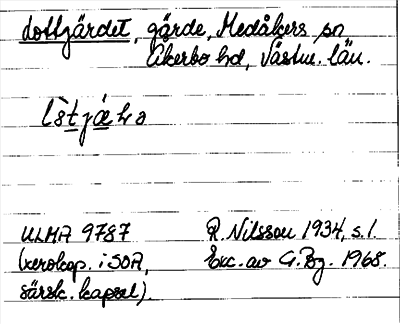 Lottgärdet, gärde, Medåkers sn
Åkerbo hd, Västm. län.
ULMA 9787
(xerokop. i SOA,
särsk. kapsel).
R. Nilsson 1934, s. 1.
Exc. av G. Bg. 1968.